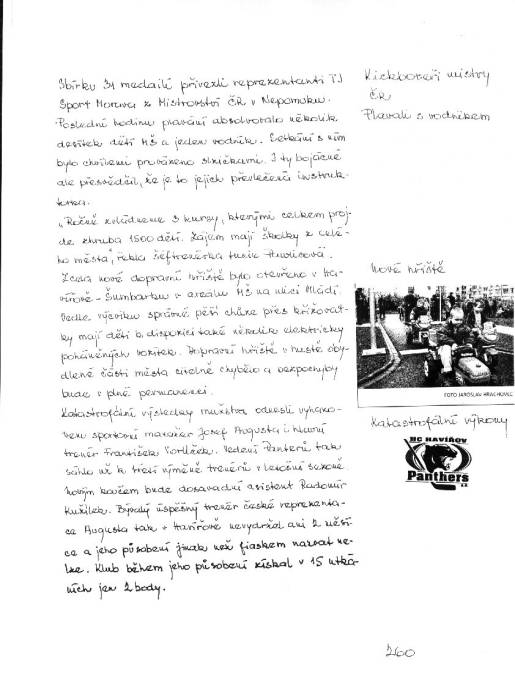 Sbírku 31 medailí přivezli reprezentanti TJ
Sport Morava z Mistrovství ČR v Nepomuku.
Poslední hodinu plavání absolvovalo několik
desítek dětí MŠ a jeden vodník. Setkání s ním
bylo chvílemi provázeno slzičkami. I ty bojácné
ale přesvědčil, že je to jejich převlečená instruk-
torka.
„Ročně zvládneme 3 kursy, kterými celkem proj-
de zhruba 1500 dětí. Zájem mají školky z celé-
ho města", řekla šéftrenérka
Zcela nové dopravní hřiště bylo otevřeno v Ha-
vířově - Šumbarku v areálu MŠ na ulici Mládí.
Vedle výcviku správné pěší chůze přes křižovat-
ky mají děti k dispozici také několik elektricky
poháněných vozítek. Dopravní hřiště v hustě oby-
dlené části města citelně chybělo a bezpochyby
bude v plné permanenci.
Katastrofální výsledky mužstva odnesli vyhazo-
vem sportovní manažer Josef Augusta i hlavní
trenér František Vorlíček. Vedení Panterů tak
sáhlo už k třetí výměně trenérů v letošní sezoně.
Novým koučem bude dosavadní asistent Radomír
Kužílek. Bývalý úspěšný trenér české reprezenta-
ce Augusta tak v Havířově nevydržel ani 2 měsí-
ce a jeho působení jinak než fiaskem nazvat ne-
lze. Klub během jeho působení získal v 15 utká-
ních jen 2 body.
Kickboxeři mistry
ČR
Plavali s vodníkem
Nové hřiště
FOTO JAROSLAV HRACHOVEC
Katastrofální výkony
HC HAVÍŘOV
Panthers
260